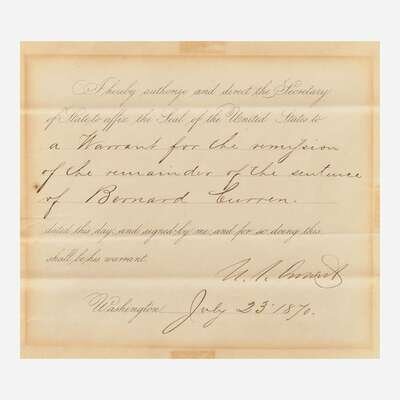 I hereby authorize and direct the Secretary
of State to affix the Seal of the United States to
a Warrant for the remission
of the remainder of the sentence
of Bernard Curren.
dated this day, and signed by me and for so doing this
shall be his warrant.
U. S. Grant
Washington July 23d 1870.